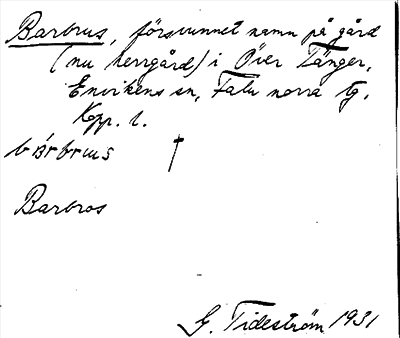 Barbrus, försvunnet namn på gård
(nu herrgård) i Över Tänger,
Envikens sn, Falu norra tg.
Kopp. l.
bárbrus †
Barbros
G. Tideström 1931